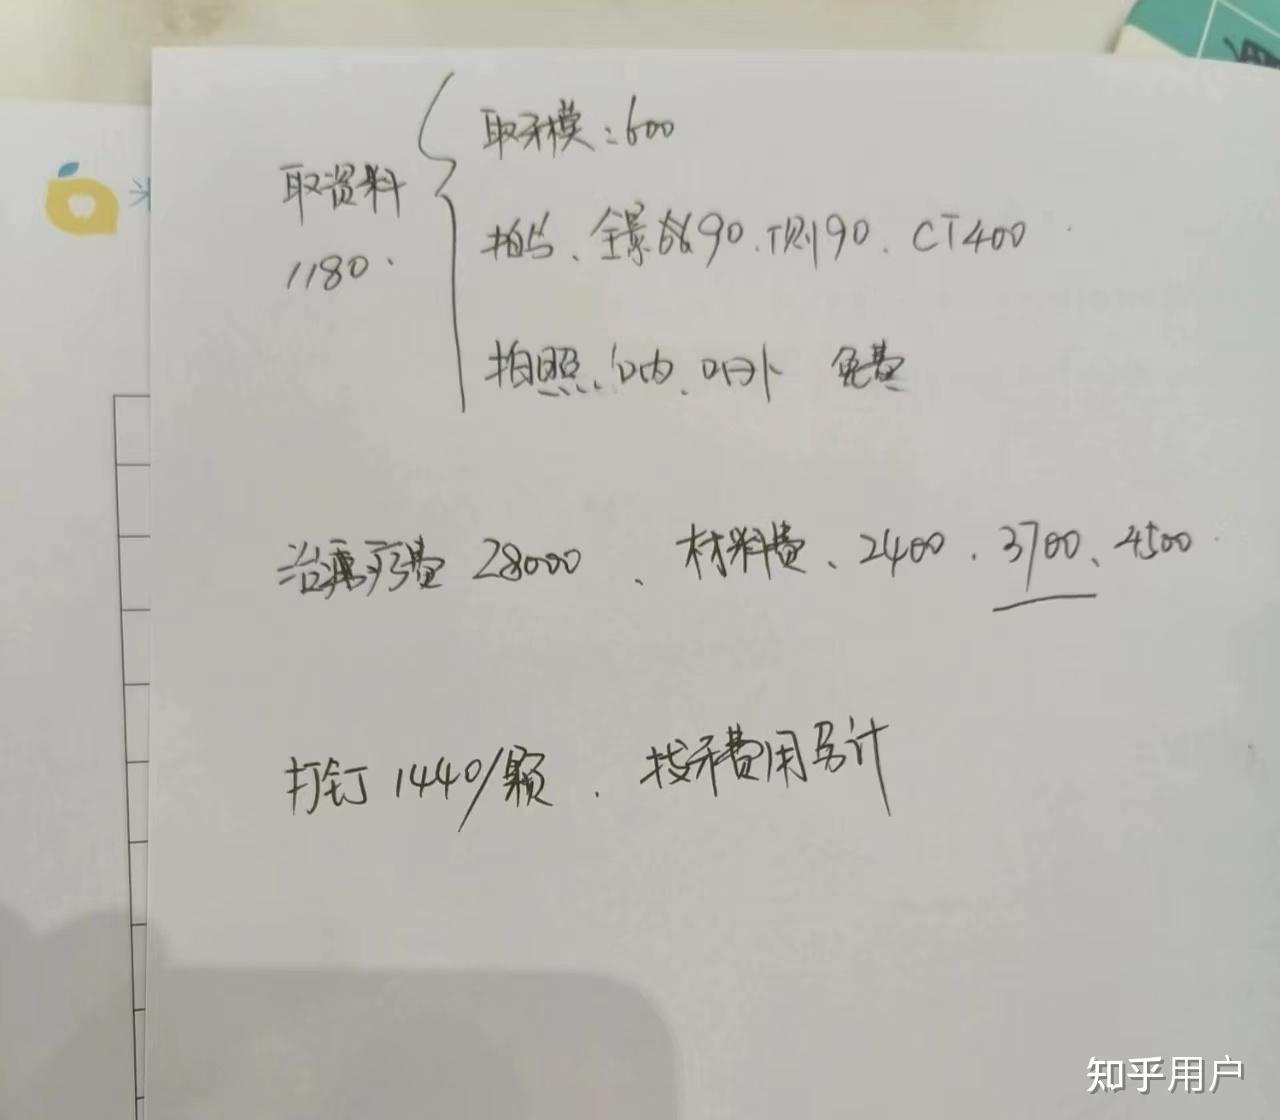 取牙模：600
取资料
1180.
拍片、全景片90.T侧90.CT400
拍照.口内.口外 免费
治疗费28000、材料费、2400.3700、4500
打钉1440/颗.拔牙费用另计
知乎用户